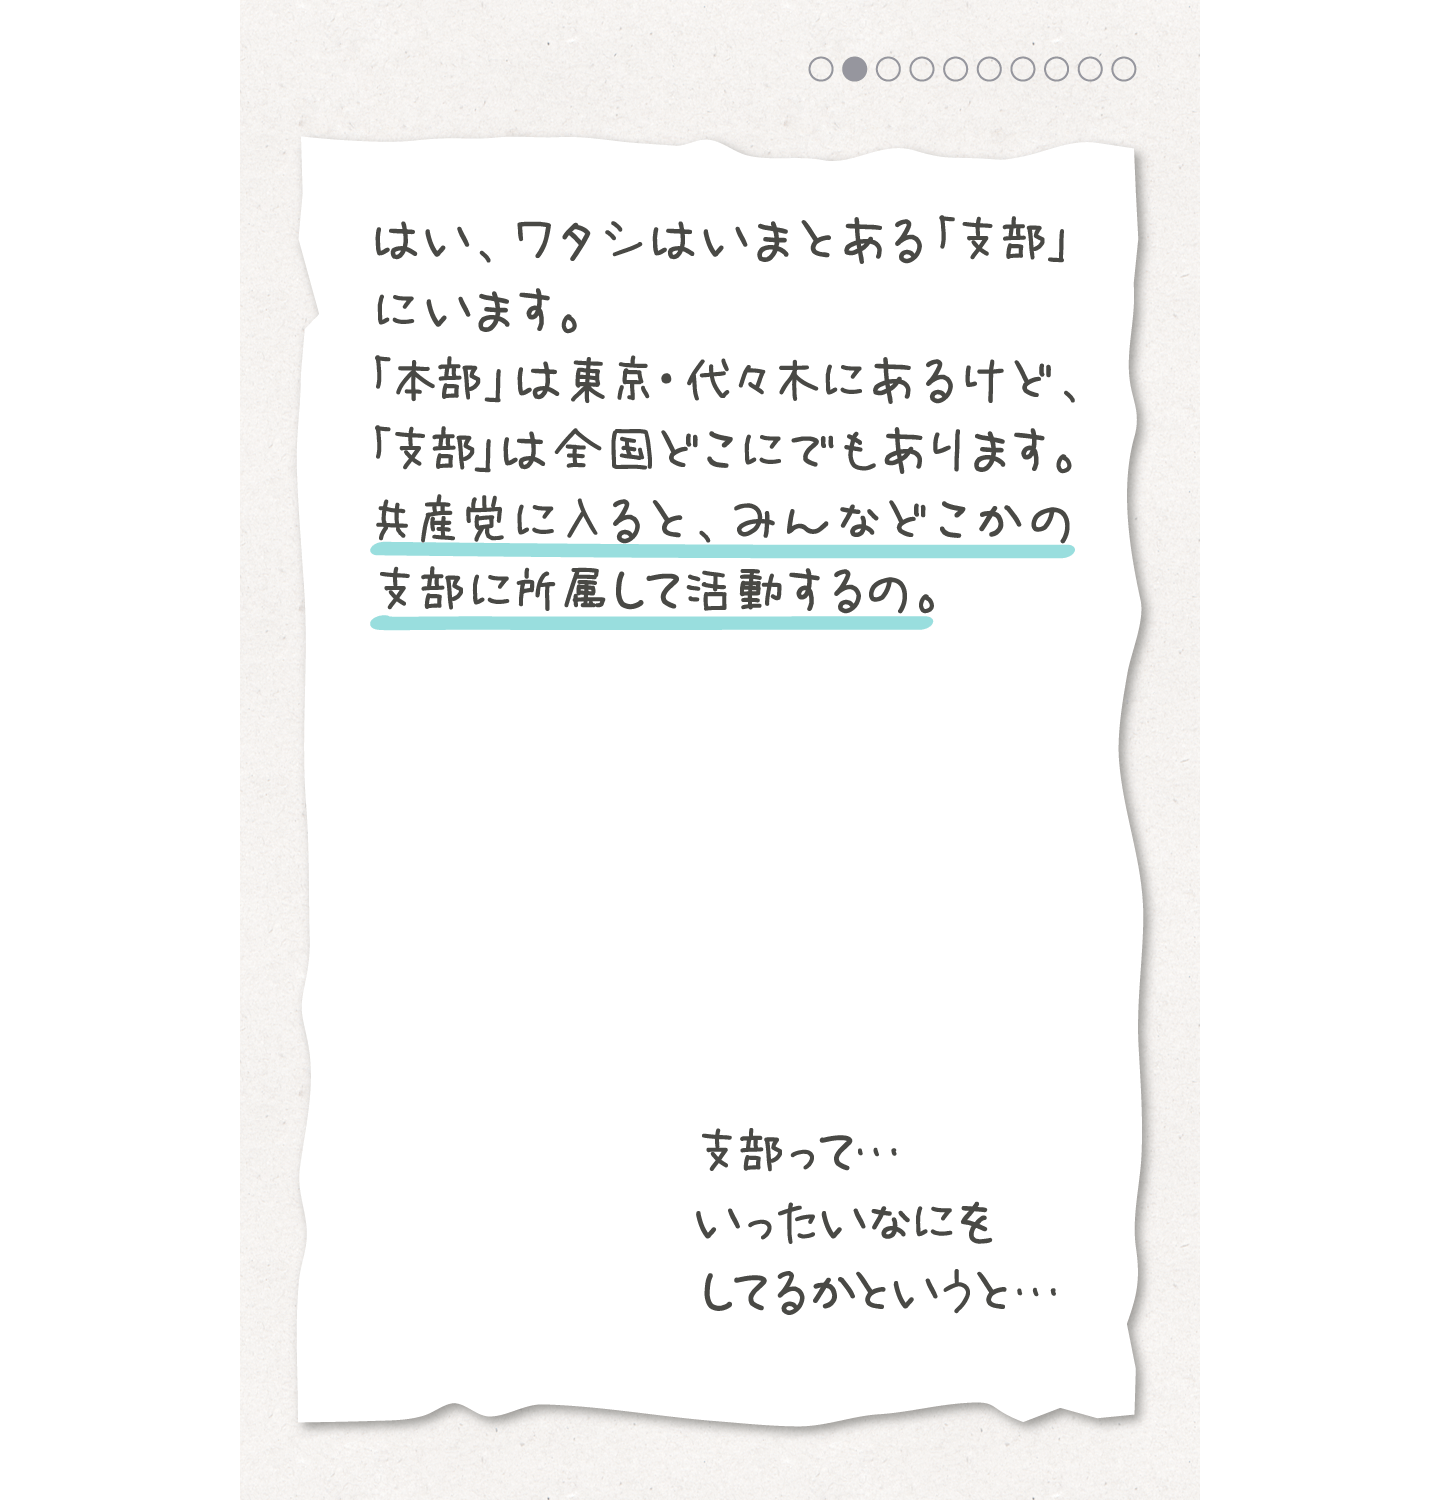 はい、ワタシはいまとある「支部」
にいます。
「本部」は東京・代々木にあるけど、
「支部」は全国どこにでもあります。
共産党に入ると、みんなどこかの
支部に所属して活動するの。
支部って…
いったいなにを
してるかというと…